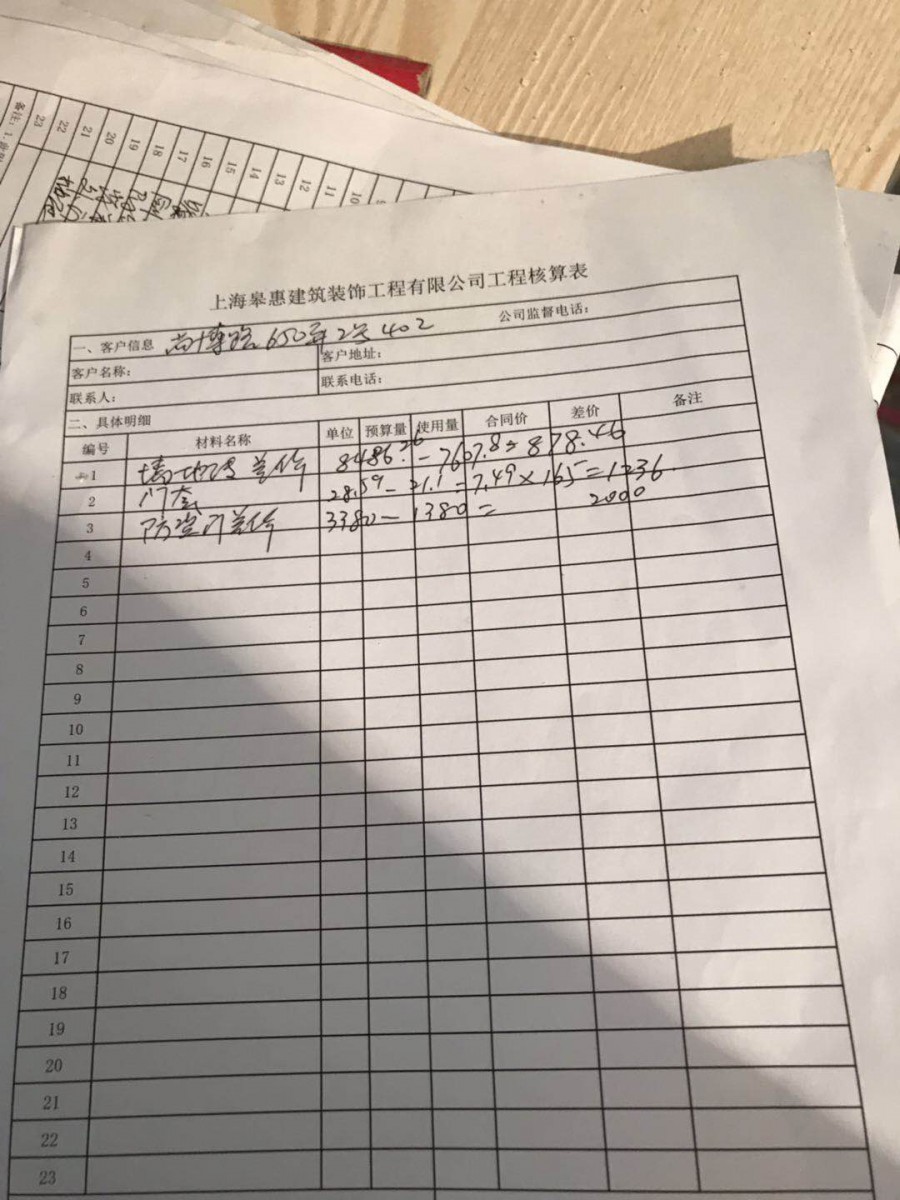 23
22
21
20
19
18
17
16
15
14
13
12
11
10
备注:1.
上海皋惠建筑装饰工程有限公司工程核算表
一、客户信息 尚博路650弄2号402 公司监督电话:
客户名称: 客户地址:
联系人: 联系电话:
二、具体明细
编号 材料名称 单位 预算量 使用量 合同价 差价 备注
1 墙地砖差价 8486.26 - 7607.8 = 878.46
2 门套 28.59 - 21.1 = 7.49 × 165 = 1236.
3 防盗门差价 3380 - 1380 = 2000
4
5
6
7
8
9
10
11
12
13
14
15
16
17
18
19
20
21
22
23